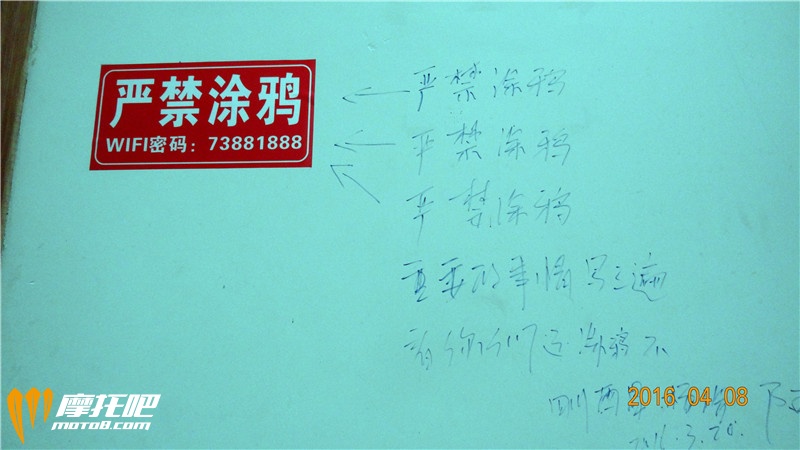 严禁涂鸦
WIFI密码：73881888
严禁涂鸦
严禁涂鸦
严禁涂鸦
重要的事情写三遍
看你们还涂鸦不
四川
2016.3.20.
2016 04 08
摩托吧
moto8.com